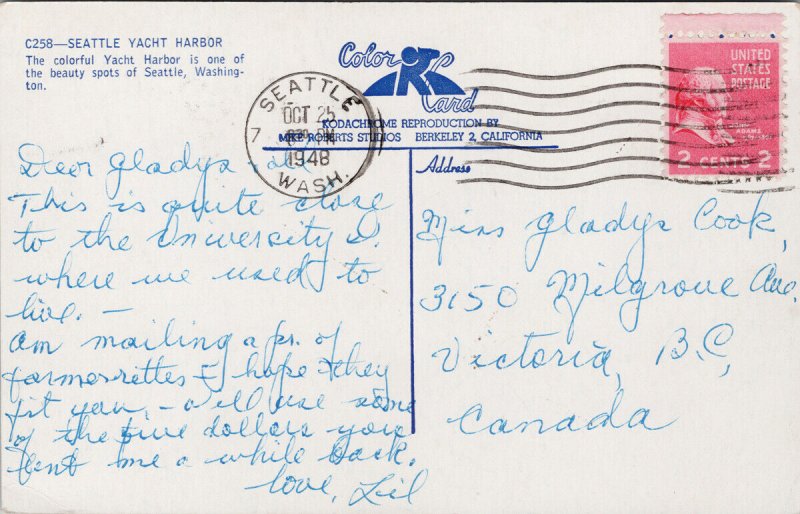 C258—SEATTLE YACHT HARBOR
The colorful Yacht Harbor is one of
the beauty spots of Seattle, Washing-
ton.
Color
Kard
KODACHROME REPRODUCTION BY
MIKE ROBERTS STUDIOS BERKELEY 2, CALIFORNIA
SEATTLE
OCT 25
7 PM
1948
WASH.
UNITED
STATES
POSTAGE
ADAMS
2 CENTS 2
Dear Gladys
This is quite close
to the University D.
where we used to
live. —
Am mailing a pr. of
farmerettes & I hope they
fit you, – I'll use some
of the five dollars you
sent me a while back.
Love, Lil
Address
Miss Gladys Cook,
3150 Milgrove Ave.
Victoria, B.C,
Canada